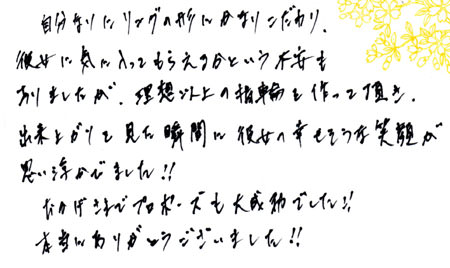 自分なりにリングの形にかなりこだわり、
彼女に気に入ってもらえるかという不安も
ありましたが、理想以上の指輪を作って頂き、
出来上がりを見た瞬間に彼女の幸せそうな笑顔が
思い浮かびました!!
おかげさまでプロポーズも大成功でした!!
本当にありがとうございました!!